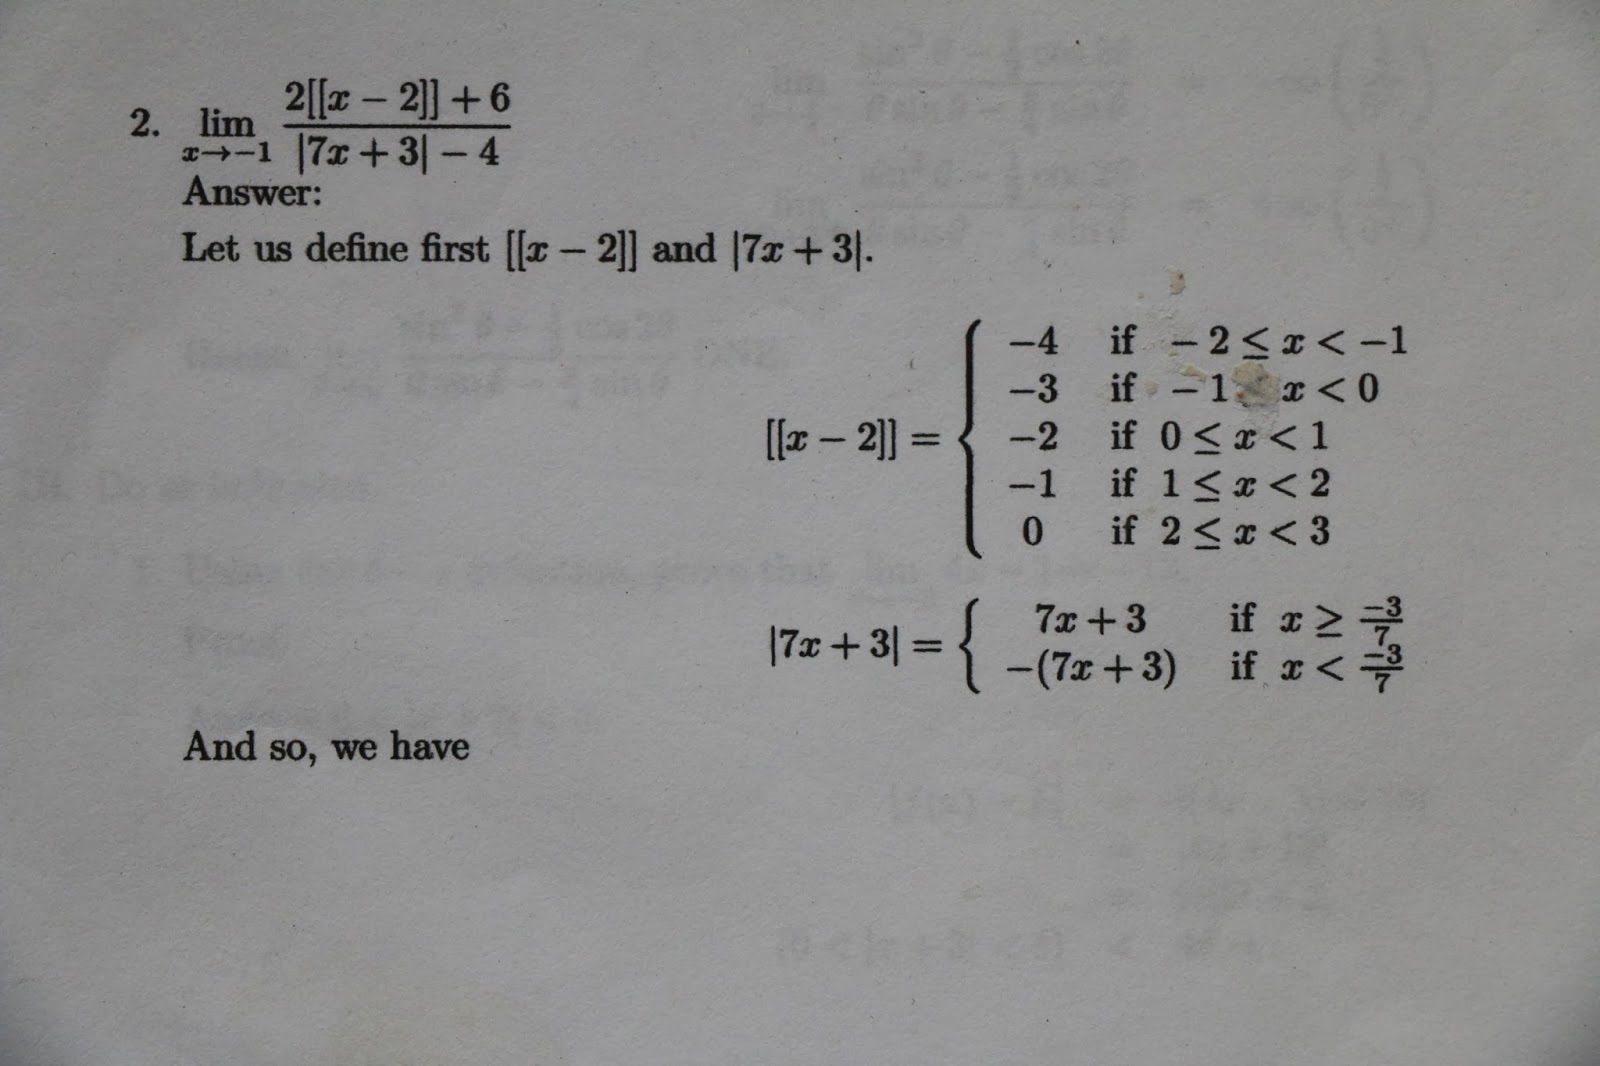 2. lim x→−1 2[[x − 2]] + 6 / |7x + 3| − 4
Answer:
Let us define first [[x − 2]] and |7x + 3|.
[[x − 2]] = { −4 if −2 ≤ x < −1
−3 if −1 ≤ x < 0
−2 if 0 ≤ x < 1
−1 if 1 ≤ x < 2
0 if 2 ≤ x < 3
|7x + 3| = { 7x + 3 if x ≥ −3/7
−(7x + 3) if x < −3/7
And so, we have